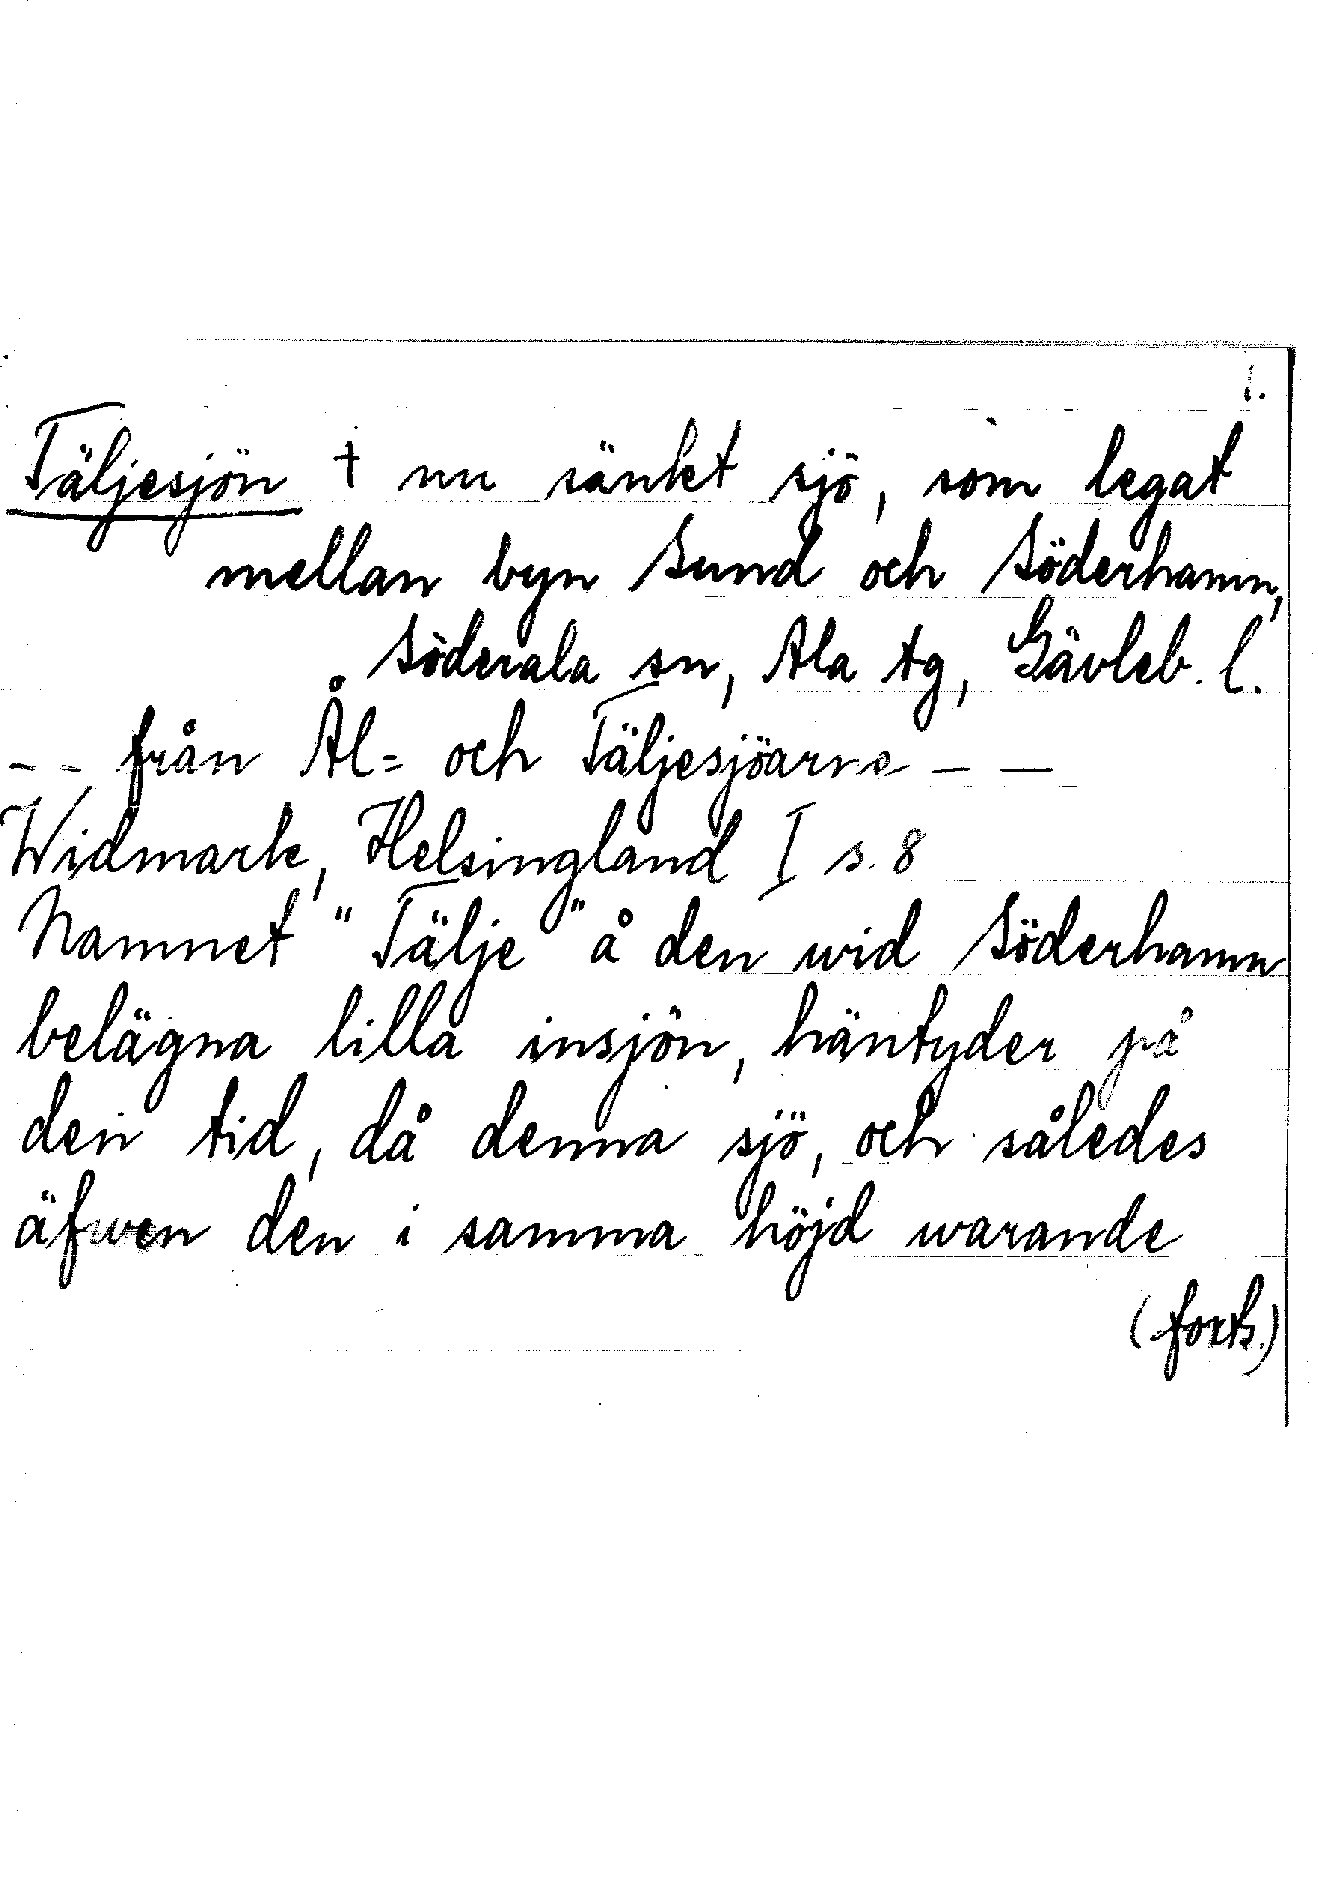 1.
Täljesjön † nu sänkt sjö, som legat
mellan byn Sund och Söderhamn,
Söderala sn, Ala tg, Gävleb. l.
-- från Ål= och Täljesjöarne - —
Widmark, Helsingland I s. 8
Namnet "Tälje" å den wid Söderhamn
belägna lilla insjön, häntyder på
den tid, då denna sjö, och således
äfwen den i samma höjd warande
(forts.)